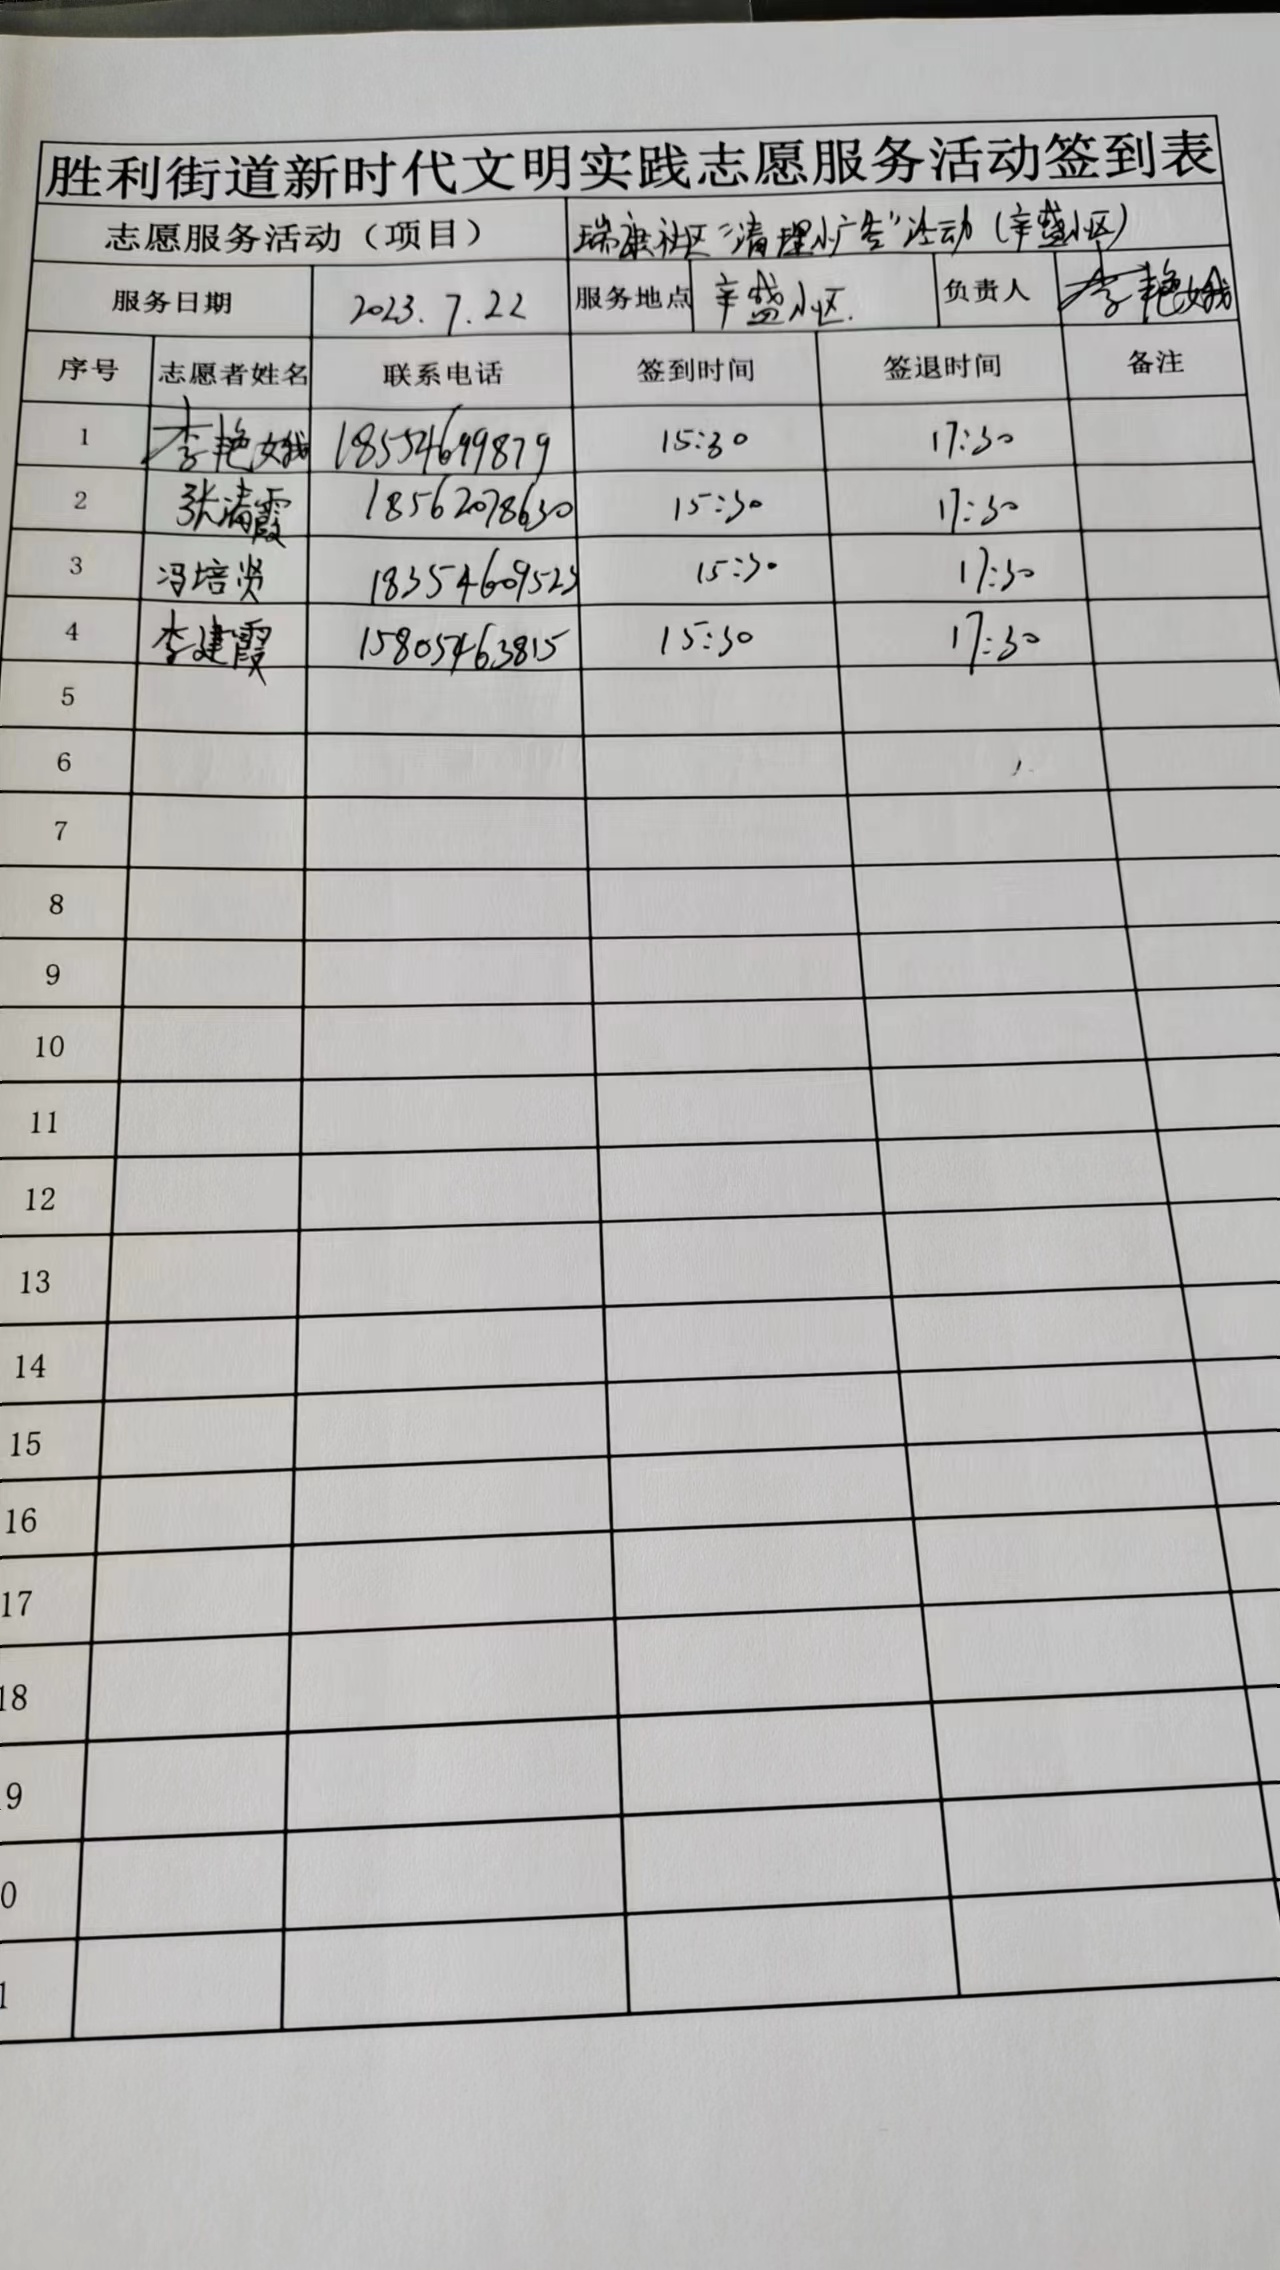 胜利街道新时代文明实践志愿服务活动签到表
志愿服务活动（项目） 瑞康社区“清理小广告”活动（辛盛小区）
服务日期 2023.7.22 服务地点 辛盛小区. 负责人 李艳娥
序号 志愿者姓名 联系电话 签到时间 签退时间 备注
1 李艳娥 18554699879 15:30 17:30
2 张清霞 18562078630 15:30 17:30
3 冯培贤 18354609523 15:30 17:30
4 李建霞 15805463815 15:30 17:30
5
6
7
8
9
10
11
12
13
14
15
16
17
18
9
0
1